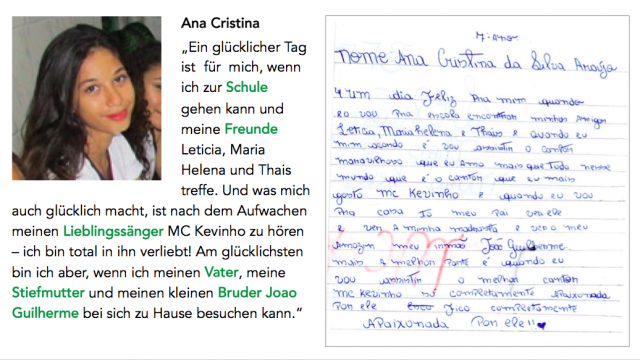 Ana Cristina
„Ein glücklicher Tag
ist für mich, wenn
ich zur Schule
gehen kann und
meine Freunde
Leticia, Maria
Helena und Thais
treffe. Und was mich
auch glücklich macht, ist nach dem Aufwachen
meinen Lieblingssänger MC Kevinho zu hören
– ich bin total in ihn verliebt! Am glücklichsten
bin ich aber, wenn ich meinen Vater, meine
Stiefmutter und meinen kleinen Bruder Joao
Guilherme bei sich zu Hause besuchen kann.“
7: Ano
Nome Ana Cristina da Silva Araújo
um dia Feliz Pra mim quando
eu vou Pra escola encontrar minhas Amigas
Leticia, Maria helena e Thais e quando eu
mim acordo e vou assistir o cantor
maravilhoso que eu Amo mais que tudo nesse
mundo que é o cantor que eu mais
gosto MC Kevinho e quando eu vou
Pra casa do meu Pai ver ele
e ver A minha madrasta e ver o meu
meu irmão João Guilherme
mais A melhor Parte é quando eu
vou assistir o melhor cantor
MC Kevinho completamente APaixonada
Por ele Fico completamente
APaixonada Por ele!!